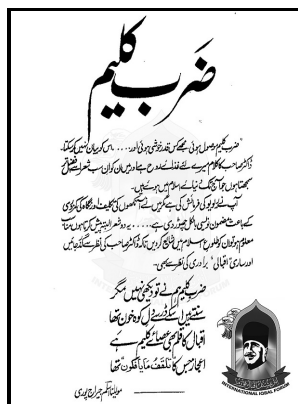 ضربِ کلیم
"ضربِ کلیم" وصول ہوئی مجھے کس قدر خوشی ہوئی اور..... اس کو بیان نہیں کر سکتا۔
ڈاکٹر صاحب کا کلام میرے لئے غذائے روح ہے اور میں ان کو ان سب شعراء سے افضل تر
سمجھتا ہوں جو آج تک دنیائے اسلام میں ہوئے ہیں۔
آپ نے ریویو کی فرمائش کی ہے مگر میں نے آنکھوں کی تکلیف اور نگاہ کی کمزوری
کے باعث مضمون نویسی بالکل چھوڑ دی ہے..... یہ دو شعر البتہ پیش کرتا ہوں مناسب
معلوم ہو تو ان کو طلوعِ اسلام میں شائع کر دیں تاکہ ڈاکٹر صاحب کی نظر سے گذر جائیں
اور ساری "اقبالی" برادری کی نظر سے بھی۔
ضربِ کلیم ہم نے تو دیکھی نہیں مگر
سنتے ہیں اسکے ڈر سے دلِ کوہ خون تھا
اقبال کا قلم بھی عصائے کلیم ہے
اعجاز جس کا "تلقف ما یافکون" تھا
مولٰنا اسلم جیراجپوری
INTERNATIONAL IQBAL FORUM